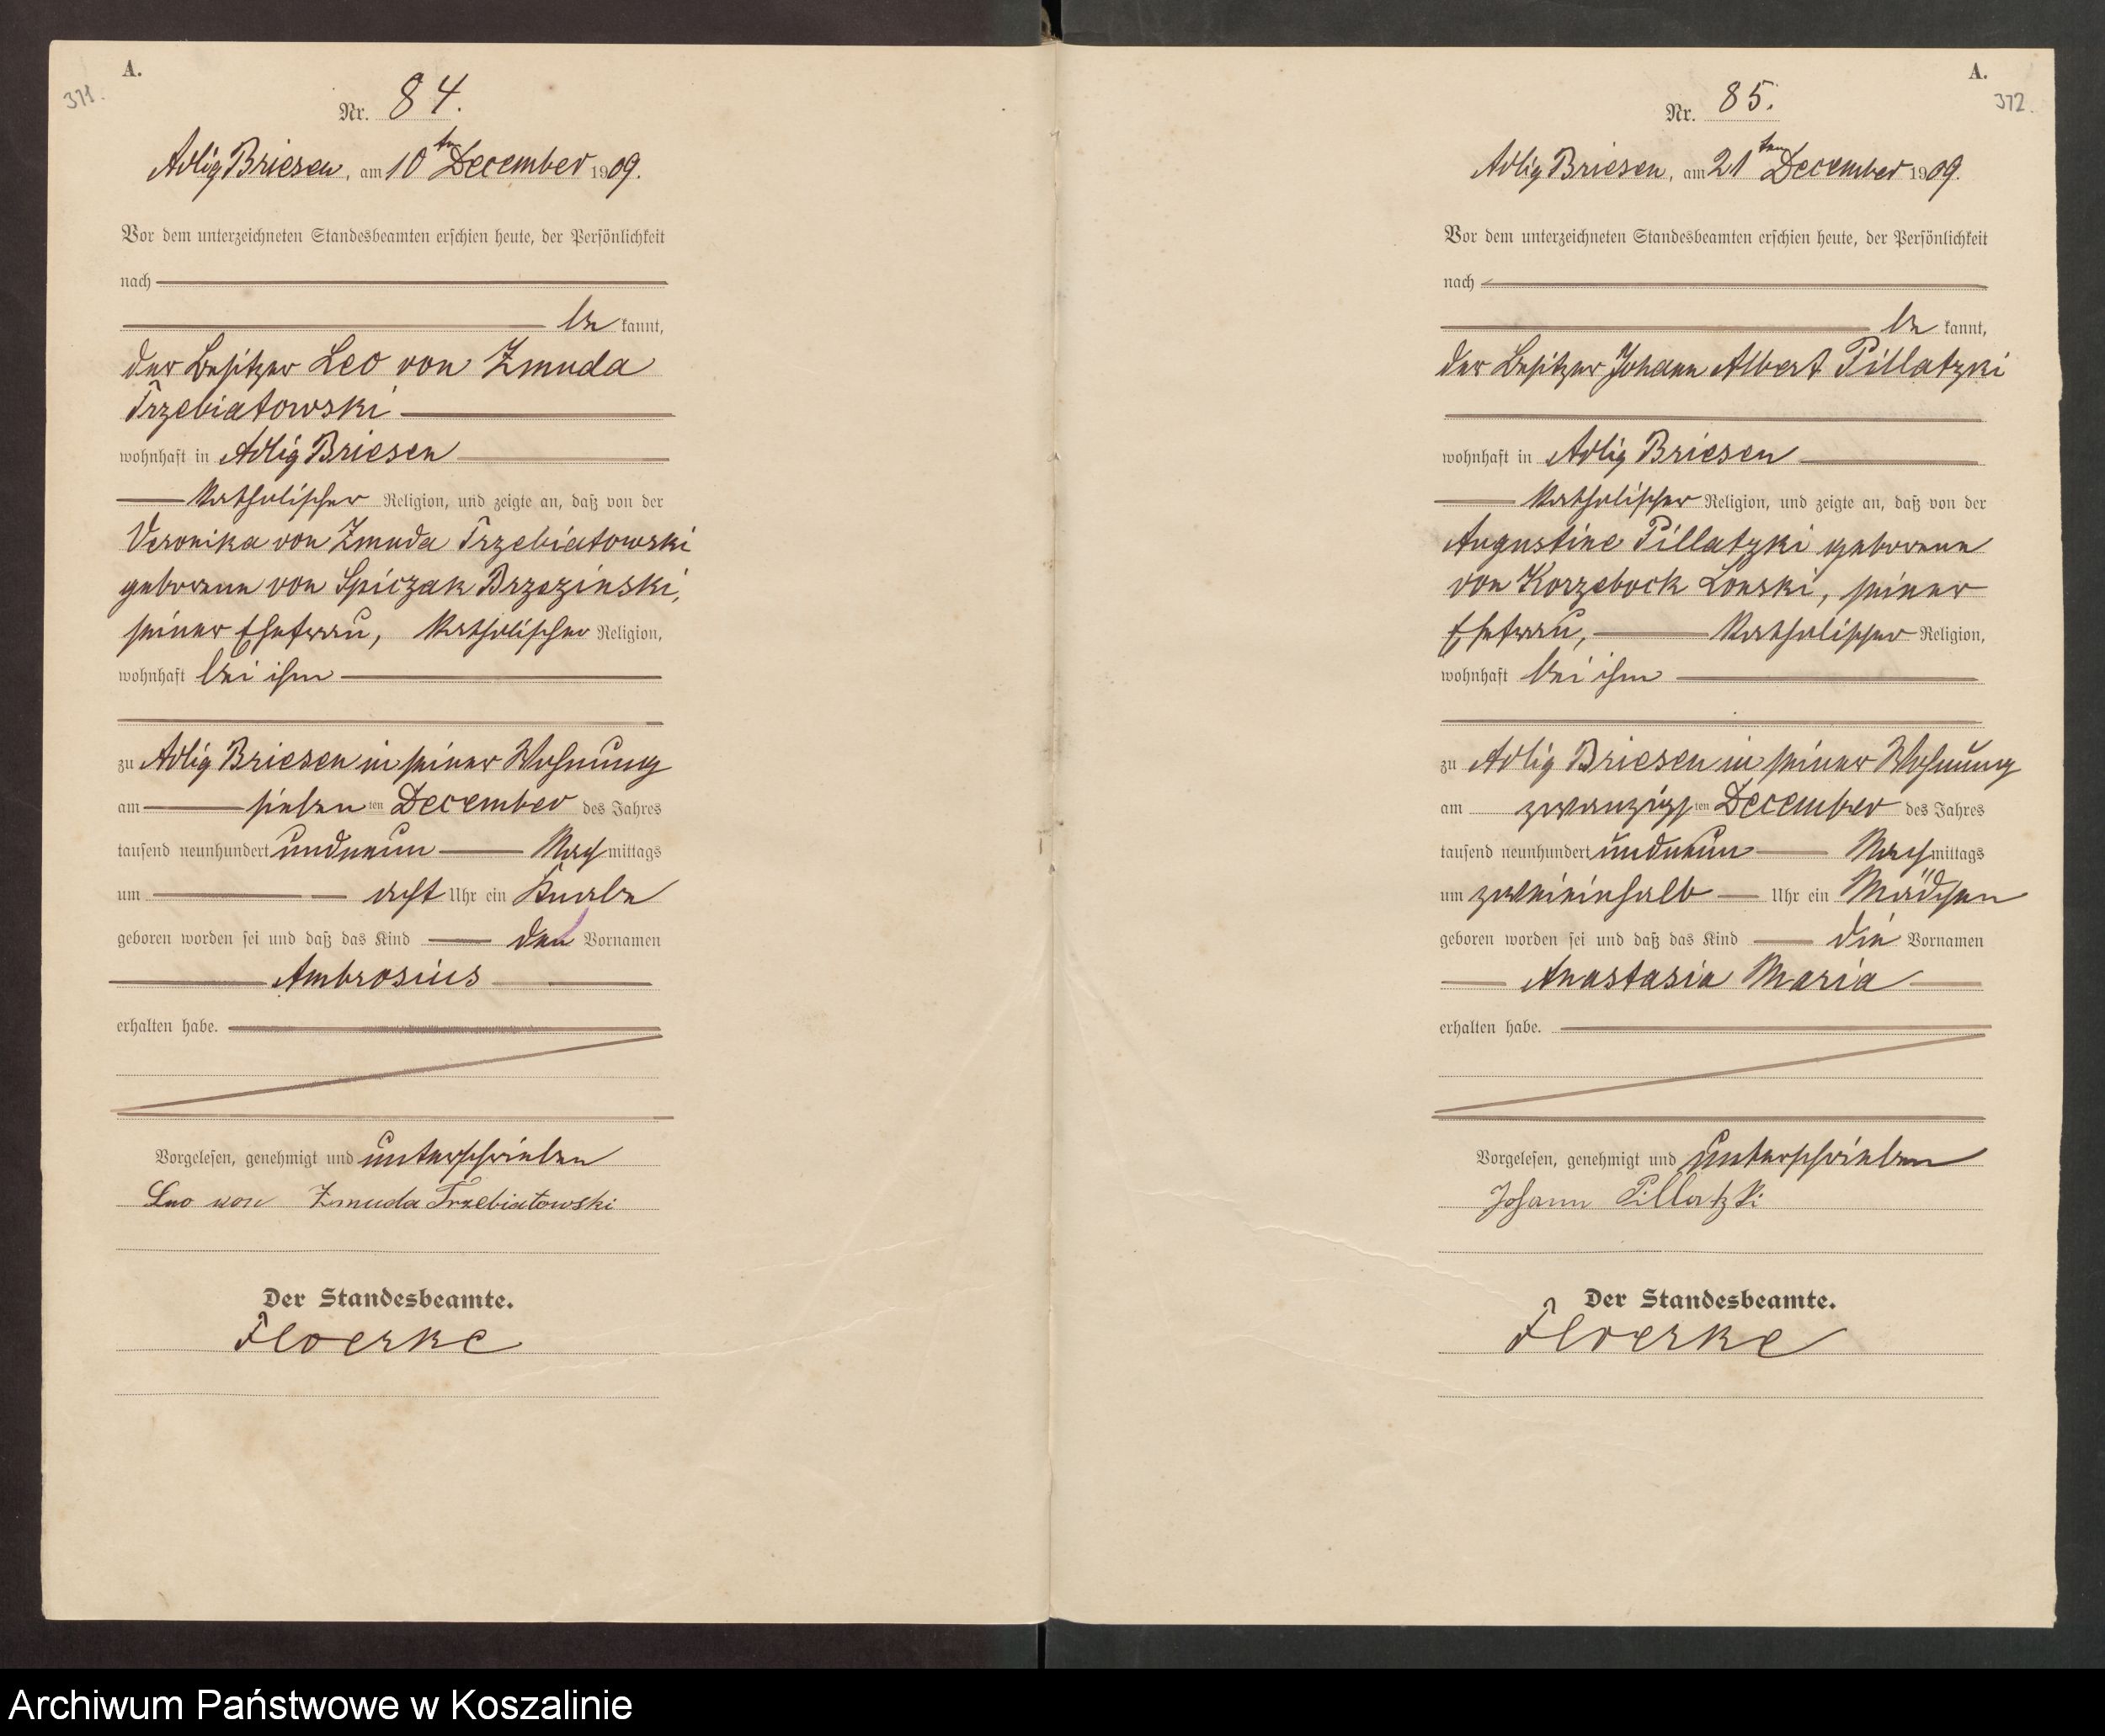 A.
371.
Nr. 84.
Adlig Briesen, am 10ten December 1909.
Vor dem unterzeichneten Standesbeamten erschien heute, der Persönlichkeit
nach
be kannt,
der Besitzer Leo von Zmuda
Trzebiatowski
wohnhaft in Adlig Briesen
katholischer Religion, und zeigte an, daß von der
Veronika von Zmuda Trzebiatowski
geborene von Spiczak Brzezinski,
seiner Ehefrau, katholischer Religion,
wohnhaft bei ihm
zu Adlig Briesen in seiner Wohnung
am sieben ten December des Jahres
tausend neunhundert undneun Nach mittags
um acht Uhr ein Knabe
geboren worden sei und daß das Kind den Vornamen
Ambrosius
erhalten habe.
Vorgelesen, genehmigt und unterschrieben
Leo von Zmuda Trzebiatowski
Der Standesbeamte.
Floerke
A.
372.
Nr. 85.
Adlig Briesen, am 21ten December 1909.
Vor dem unterzeichneten Standesbeamten erschien heute, der Persönlichkeit
nach
be kannt,
der Besitzer Johann Albert Pillatzki
wohnhaft in Adlig Briesen
katholischer Religion, und zeigte an, daß von der
Augustine Pillatzki geborene
von Korzebock Lonski, seiner
Ehefrau, katholischer Religion,
wohnhaft bei ihm
zu Adlig Briesen in seiner Wohnung
am zwanzigs ten December des Jahres
tausend neunhundert undneun Nach mittags
um zweieinhalb Uhr ein Mädchen
geboren worden sei und daß das Kind die Vornamen
Anastasia Maria
erhalten habe.
Vorgelesen, genehmigt und unterschrieben
Johann Pillatzki
Der Standesbeamte.
Floerke
Archiwum Państwowe w Koszalinie